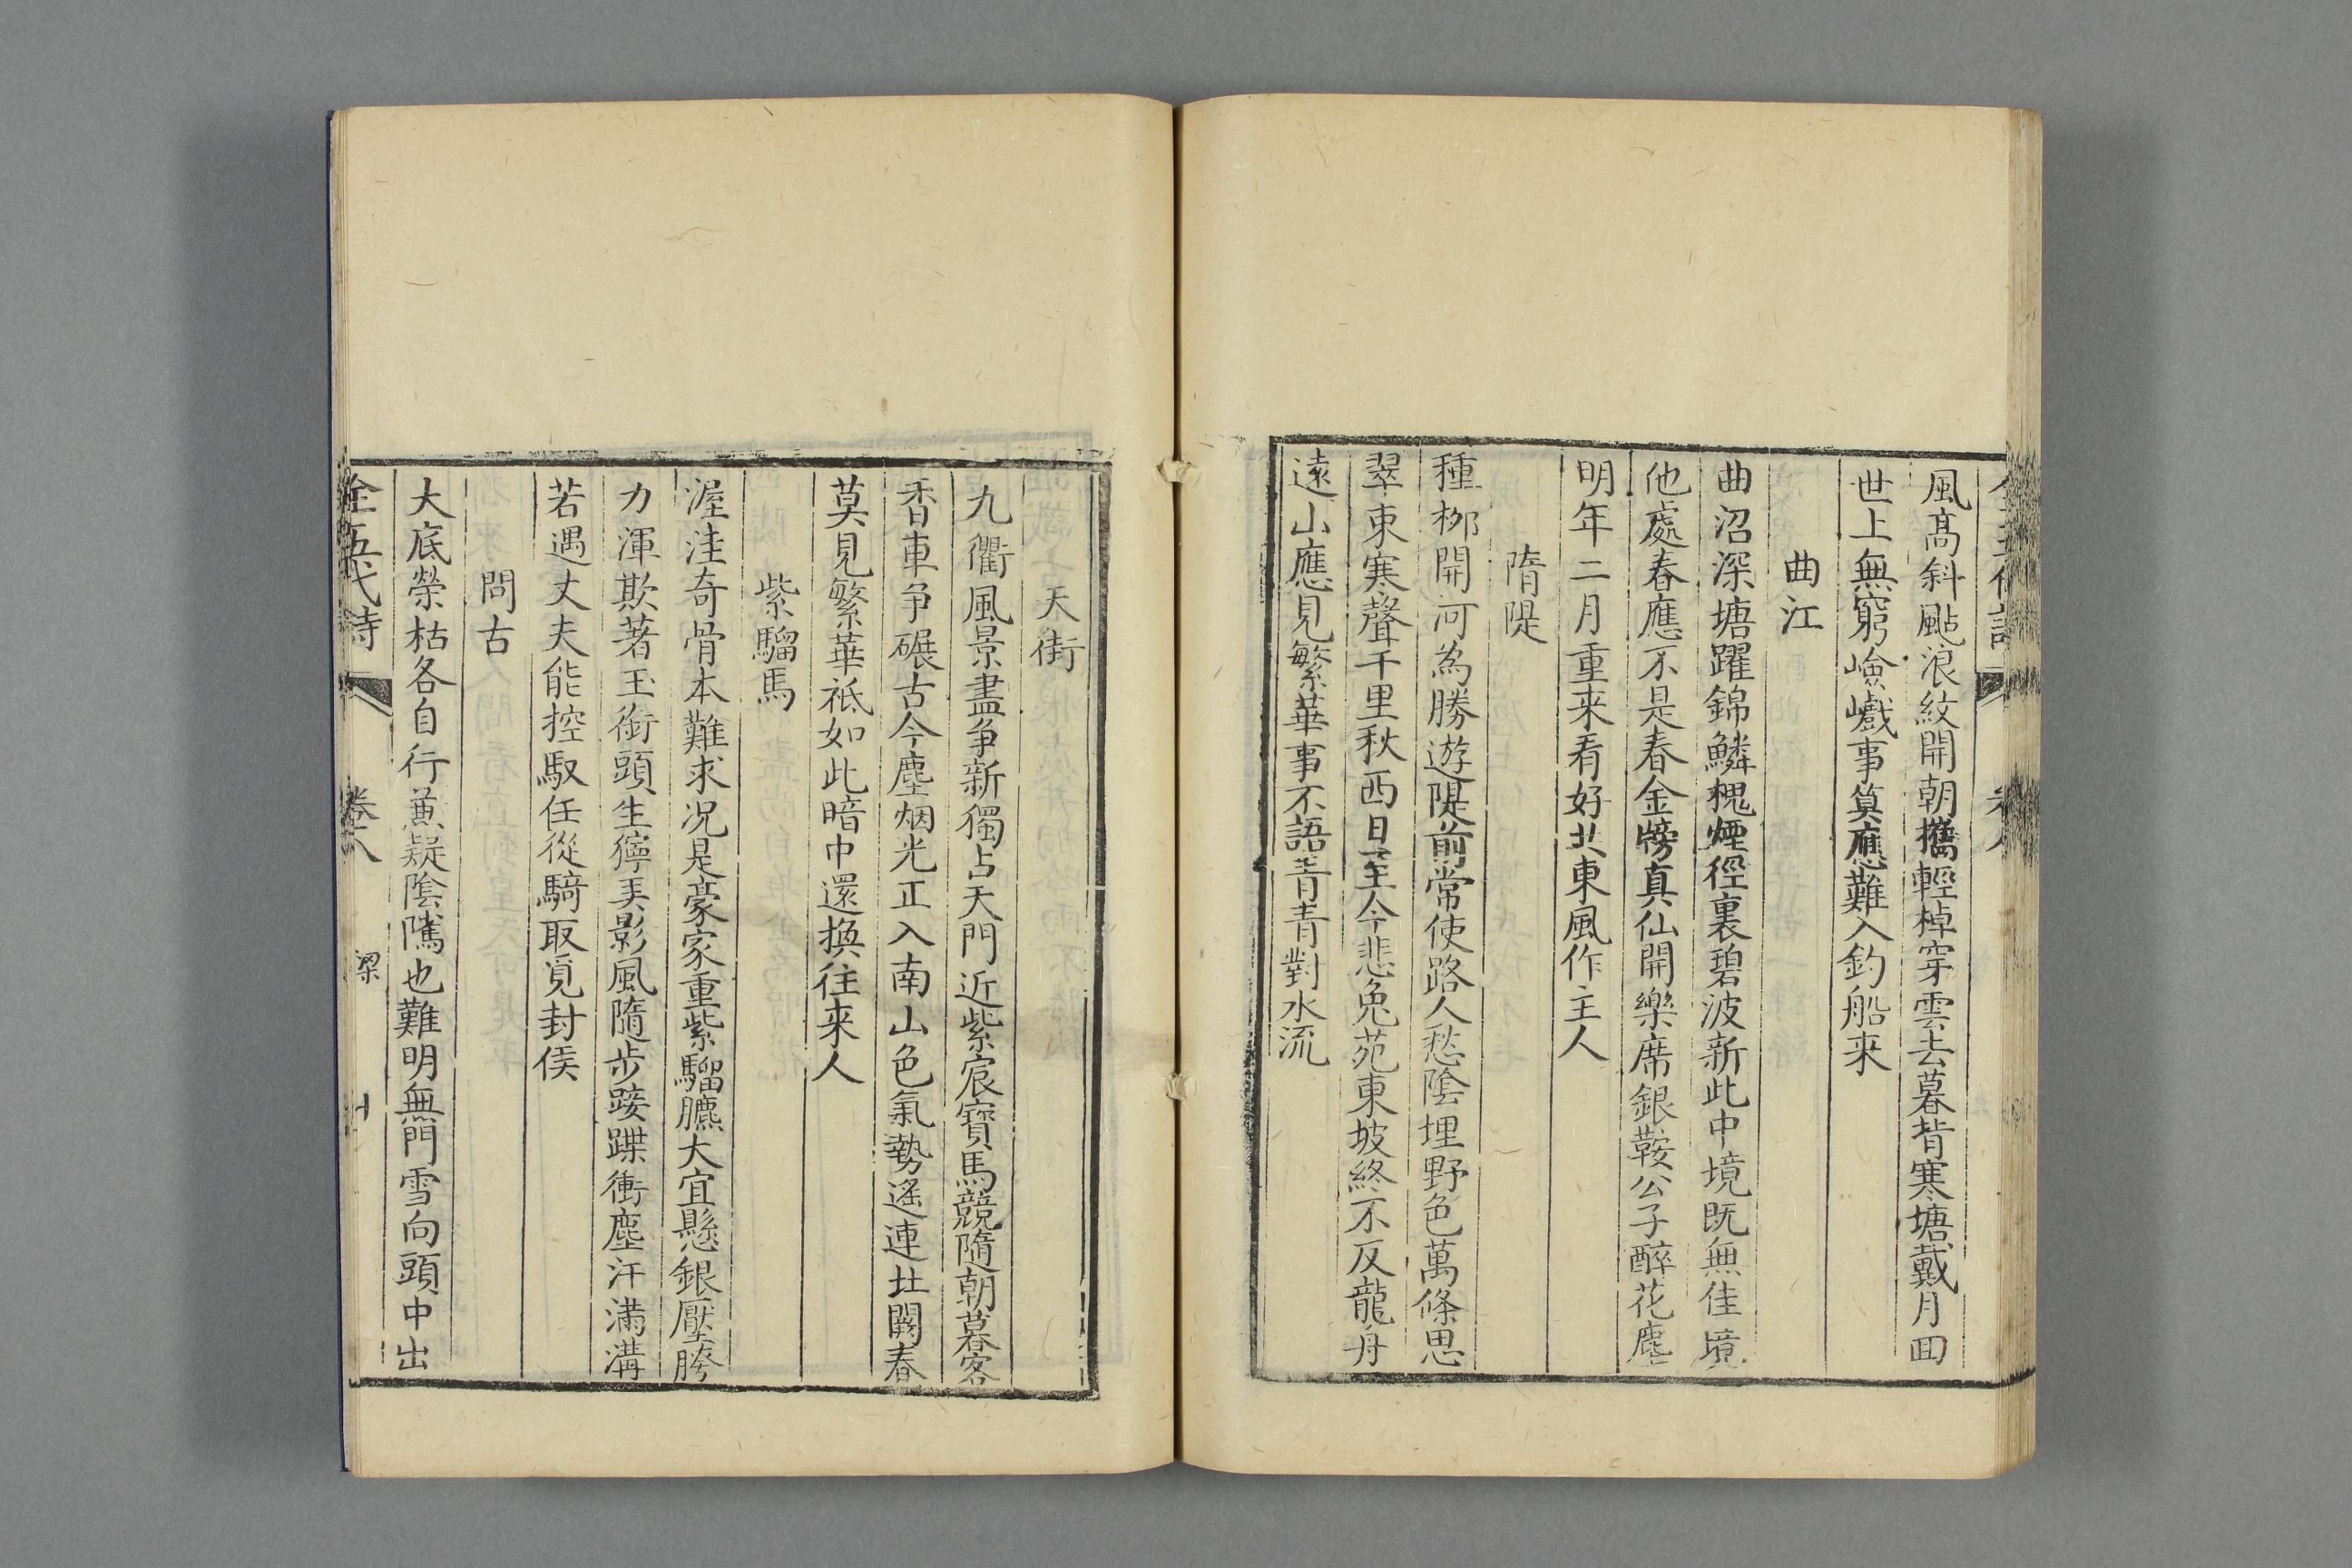 風髙斜颭浪紋開朝攜輕棹穿雲去暮背寒塘戴月囬
世上無窮嶮巇事算應難入釣船来
曲江
曲沼深塘躍錦鱗槐煙徑裏碧波新此中境既無佳境
他處春應不是春金牓真仙開樂席銀鞍公子醉花塵
明年二月重来看好共東風作主人
隋隄
種栁開河為勝遊隄前常使路人愁陰埋野色萬條思
翠束寒聲千里秋西日至今悲兔苑東坡終不反龍舟
遠山應見繁華事不語青青對水流
天街
九衢風景盡争新獨占天門近紫宸寳馬競隨朝暮客
香車争碾古今塵烟光正入南山色氣勢遙連北闕春
莫見繁華祗如此暗中還換往来人
紫騮馬
渥洼奇骨本難求况是豪家重紫騮臕大宜懸銀壓胯
力渾欺著玉銜頭生獰美影風隨步踥蹀衝塵汗滿溝
若遇丈夫能控馭任從騎取覓封侯
問古
大底榮枯各自行兼疑陰隲也難明無門雪向頭中出
全五代詩 卷八 梁